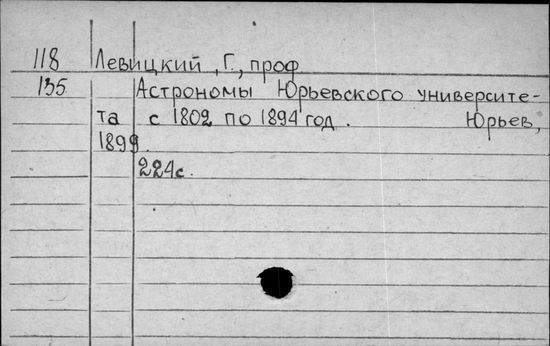 118 Левицкий, Г., проф
135 Астрономы Юрьевского университе-
та с 1802 по 1894 год. Юрьев,
1899.
224с.